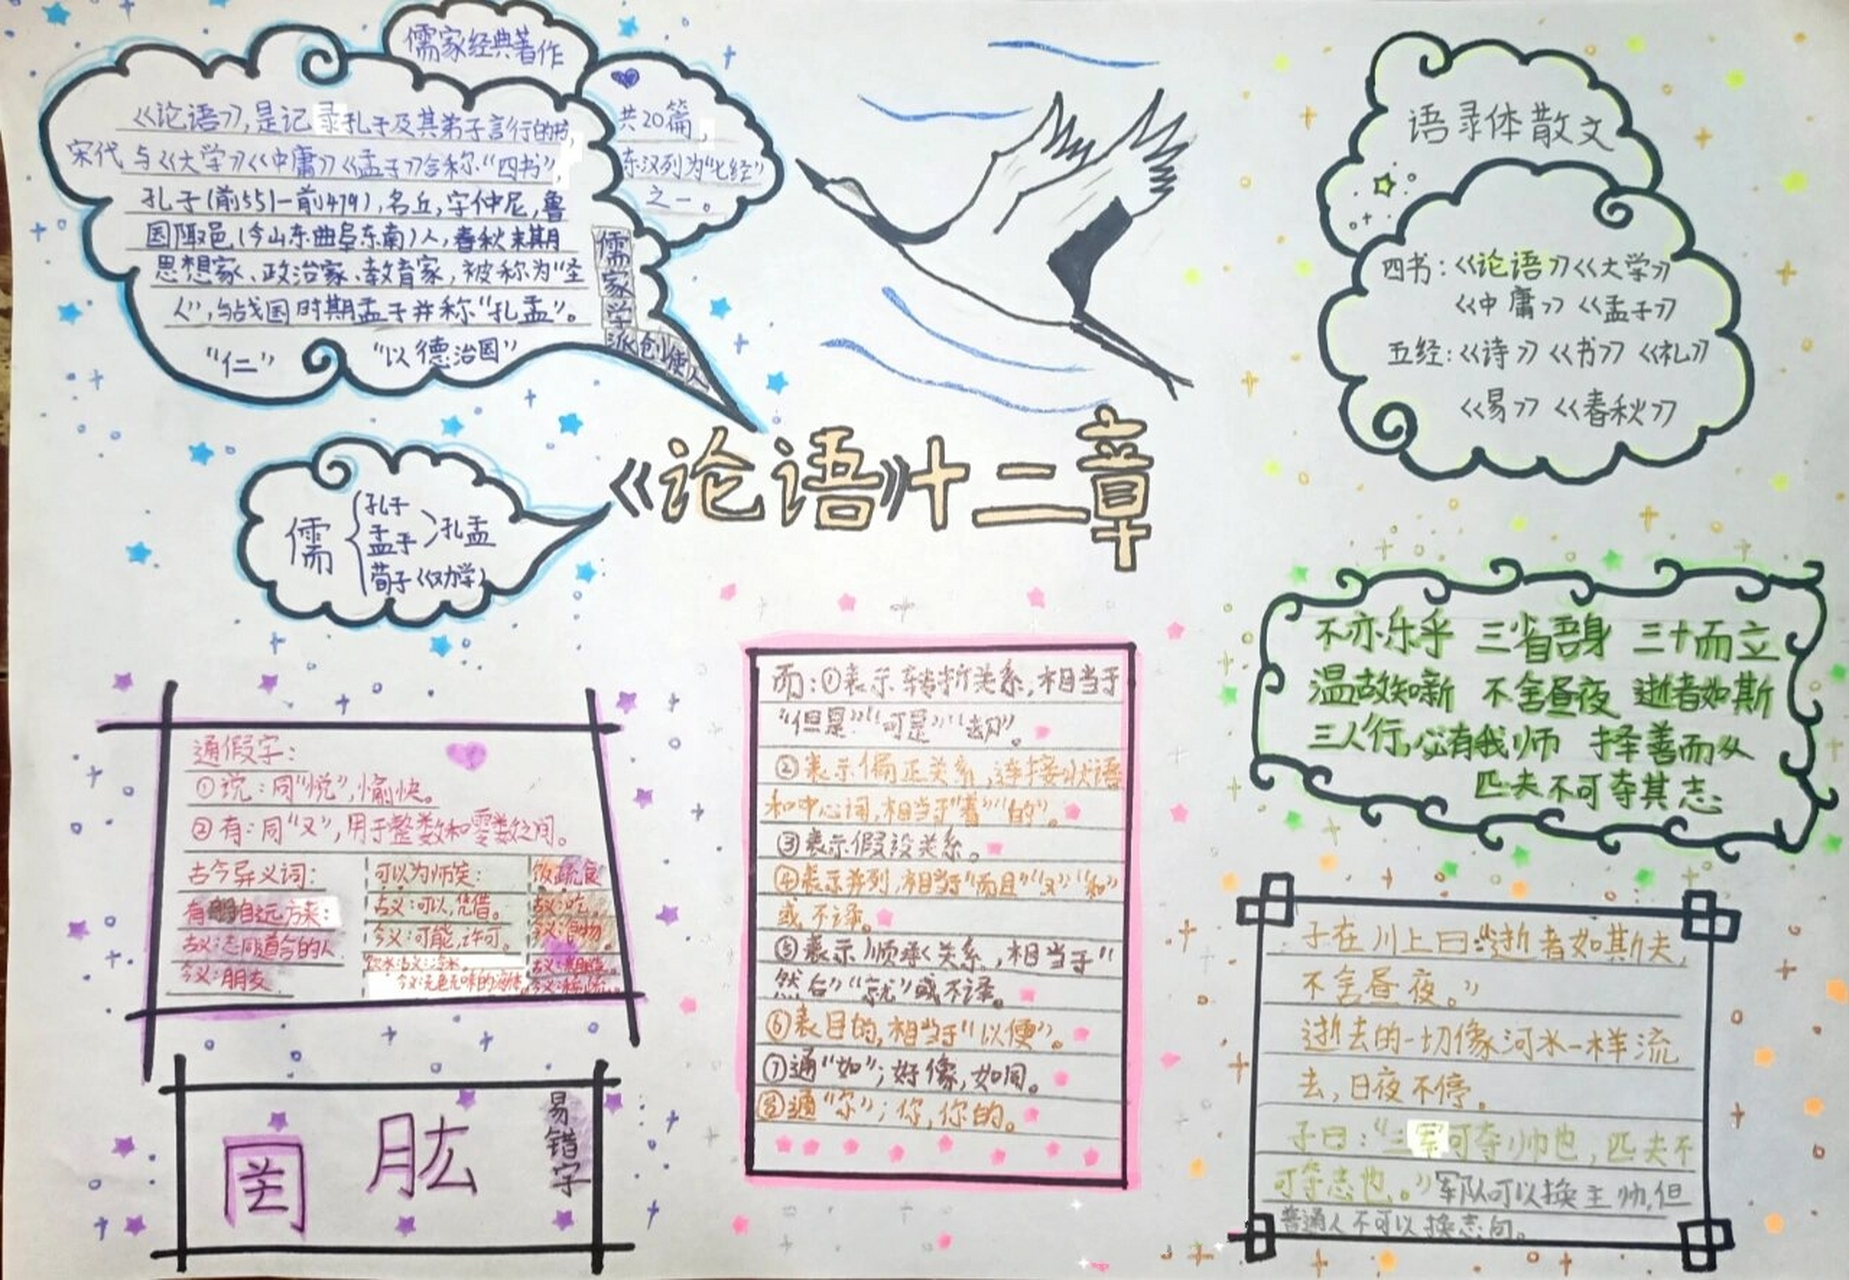 儒家经典著作
《论语》,是记录孔子及其弟子言行的书,
宋代与《大学》《中庸》《孟子》合称“四书”,
孔子(前551-前479),名丘,字仲尼,鲁
国陬邑(今山东曲阜东南)人,春秋末期
思想家、政治家、教育家,被称为“圣
人”,与战国时期孟子并称“孔孟”。
“仁” “以德治国”
共20篇,
东汉列为“七经”
之一。
儒家学派创使人
儒
孔子
孟子
孔孟
荀子《劝学》
《论语》十二章
语录体散文
四书:《论语》《大学》
《中庸》《孟子》
五经:《诗》《书》《礼》
《易》《春秋》
不亦乐乎 三省吾身 三十而立
温故知新 不舍昼夜 逝者如斯
三人行,必有我师 择善而从
匹夫不可夺其志
通假字:
①说:同“悦”,愉快。
②有:同“又”,用于整数和零数之间。
古今异义词:
有朋自远方来:
古义:志同道合的人
今义:朋友
可以为师矣:
古义:可以,凭借。
今义:可能,许可。
饭蔬食
古义:吃。
今义:食物。
易错字
肱
而:①表示转折关系,相当于
“但是”“可是”“却”。
②表示偏正关系,连接状语
和中心词,相当于“着”“的”。
③表示假设关系。
④表示并列,相当于“而且”“又”“和”
或不译。
⑤表示顺承关系,相当于“
然后”“就”或不译。
⑥表目的,相当于“以便”。
⑦通“如”;好像,如同。
⑧通“尔”;你,你的。
子在川上曰:“逝者如斯夫,
不舍昼夜。”
逝去的一切像河水一样流
去,日夜不停。
子曰:“三军可夺帅也,匹夫不
可夺志也。”军队可以换主帅,但
普通人不可以换志向。